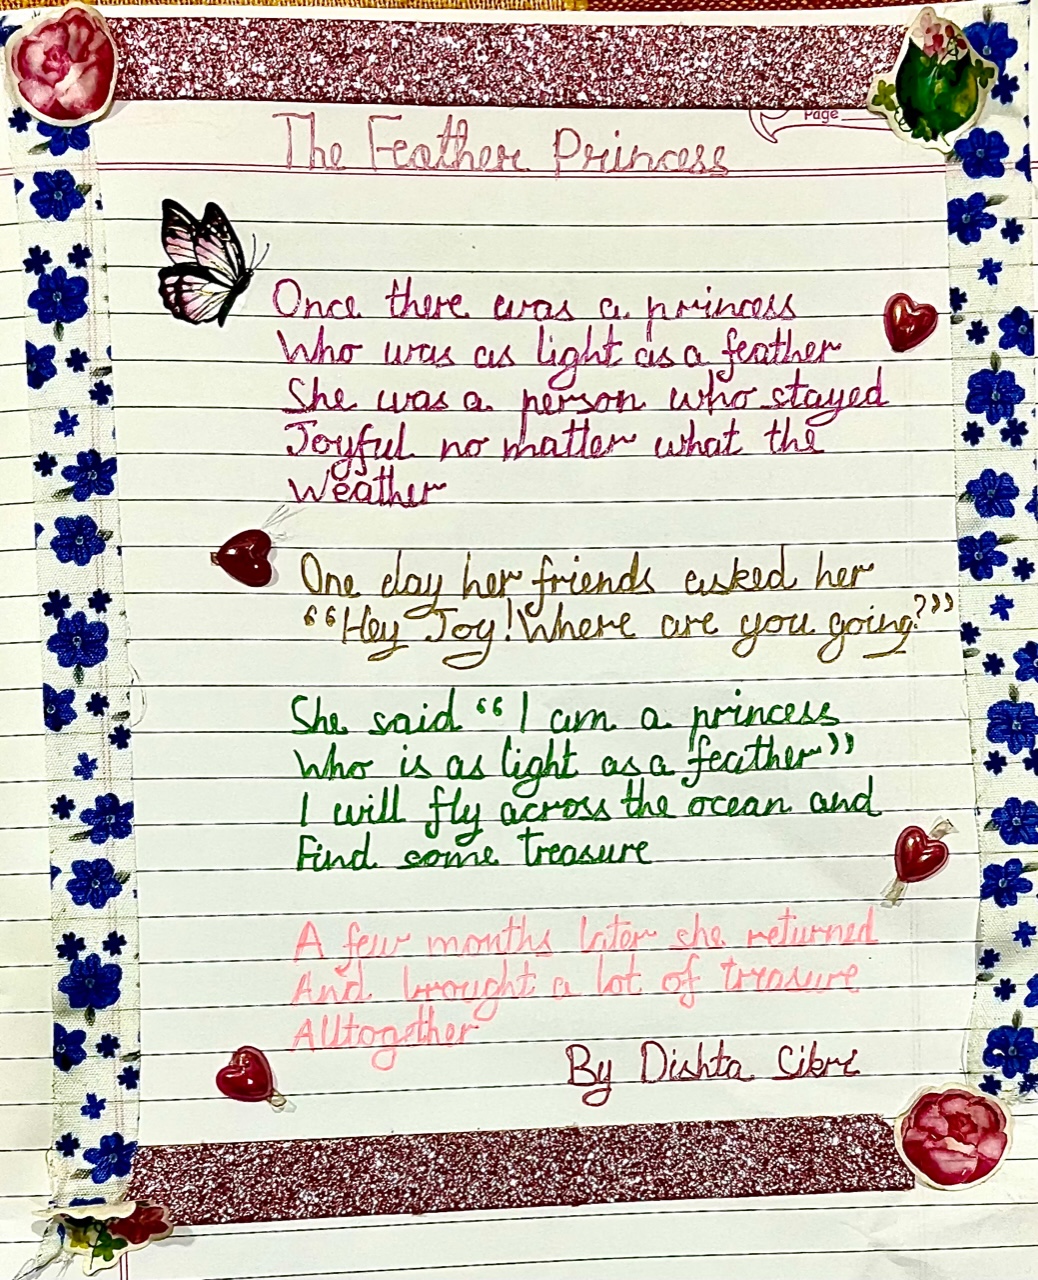 Page
The Feather Princess
Once there was a princess
Who was as light as a feather
She was a person who stayed
Joyful no matter what the
Weather
One day her friends asked her
“Hey Joy! Where are you going?”
She said “I am a princess
Who is as light as a feather”
I will fly across the ocean and
Find some treasure
A few months later she returned
And brought a lot of treasure
Alltogether
By Dishta Sikri